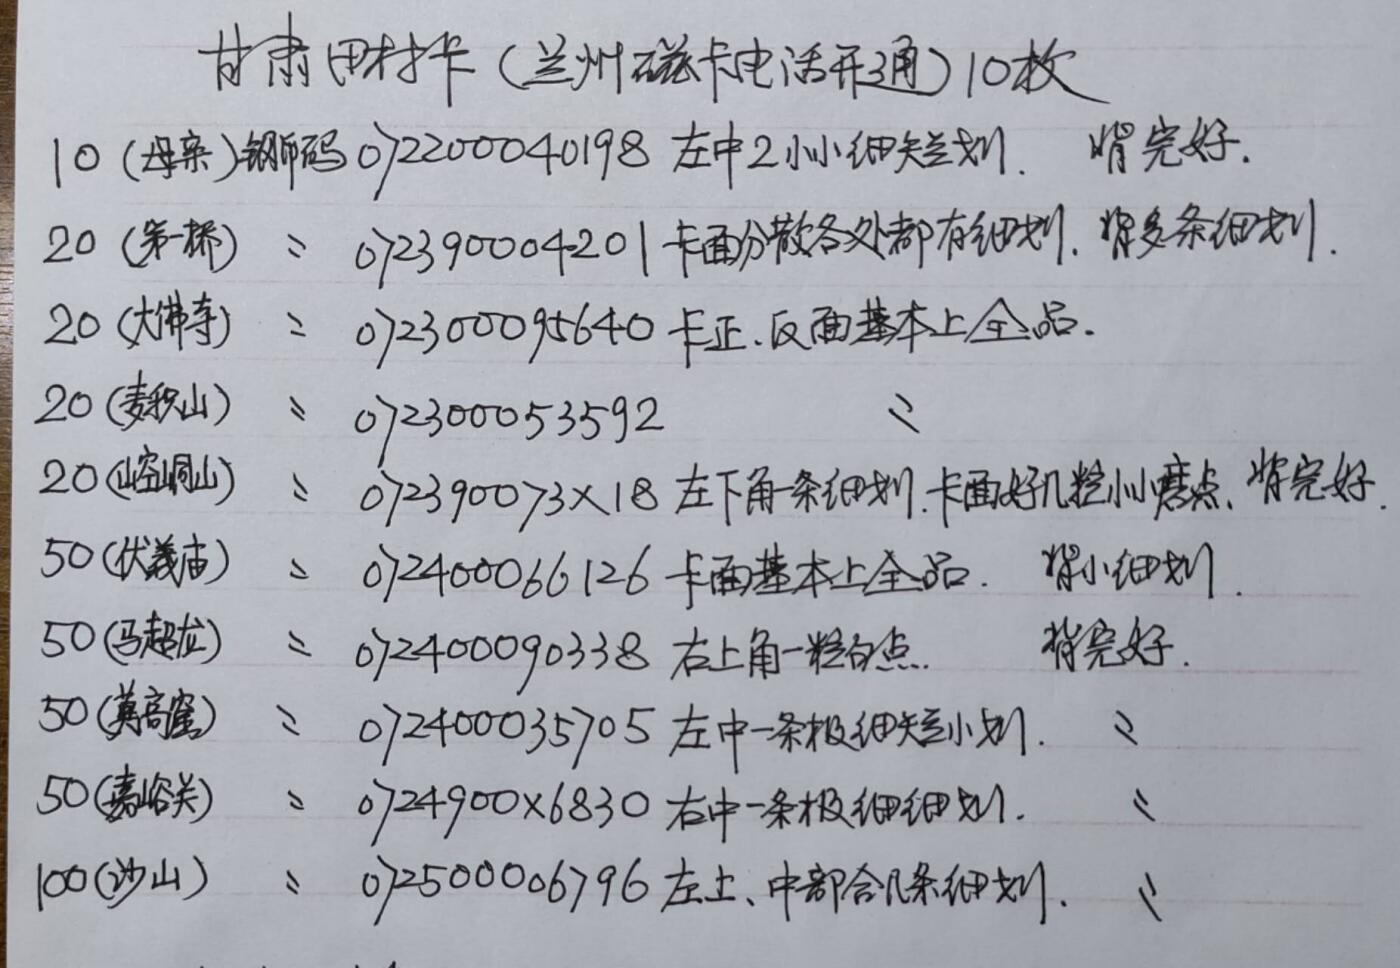 甘肃田村卡(兰州磁卡电话开通)10枚
10(母亲)钢印码 072200040198 左中2小小细短划. 背完好.
20(第一桥) 〃 072390004201 卡面分散各处都有细划. 背多条细划.
20(大佛寺) 〃 072300095640 卡正.反面基本上全品.
20(麦积山) 〃 072300053592 〃
20(崆峒山) 〃 072390073×18 左下角一条细划.卡面好几粒小小磨点、背完好.
50(伏羲庙) 〃 072400066126 卡面基本上全品. 背小细划.
50(马超龙) 〃 072400090338 右上角一粒白点. 背完好.
50(莫高窟) 〃 072400035705 左中一条极细短小划. 〃
50(嘉峪关) 〃 0724900×6830 右中一条极细细划. 〃
100(沙山) 〃 072500006796 左上、中部合几条细划. 〃